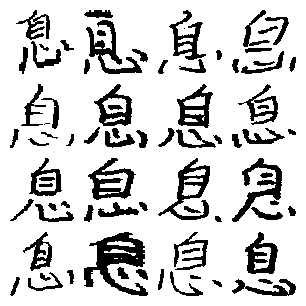 息息息息
息息息息
息息息息
息息息息